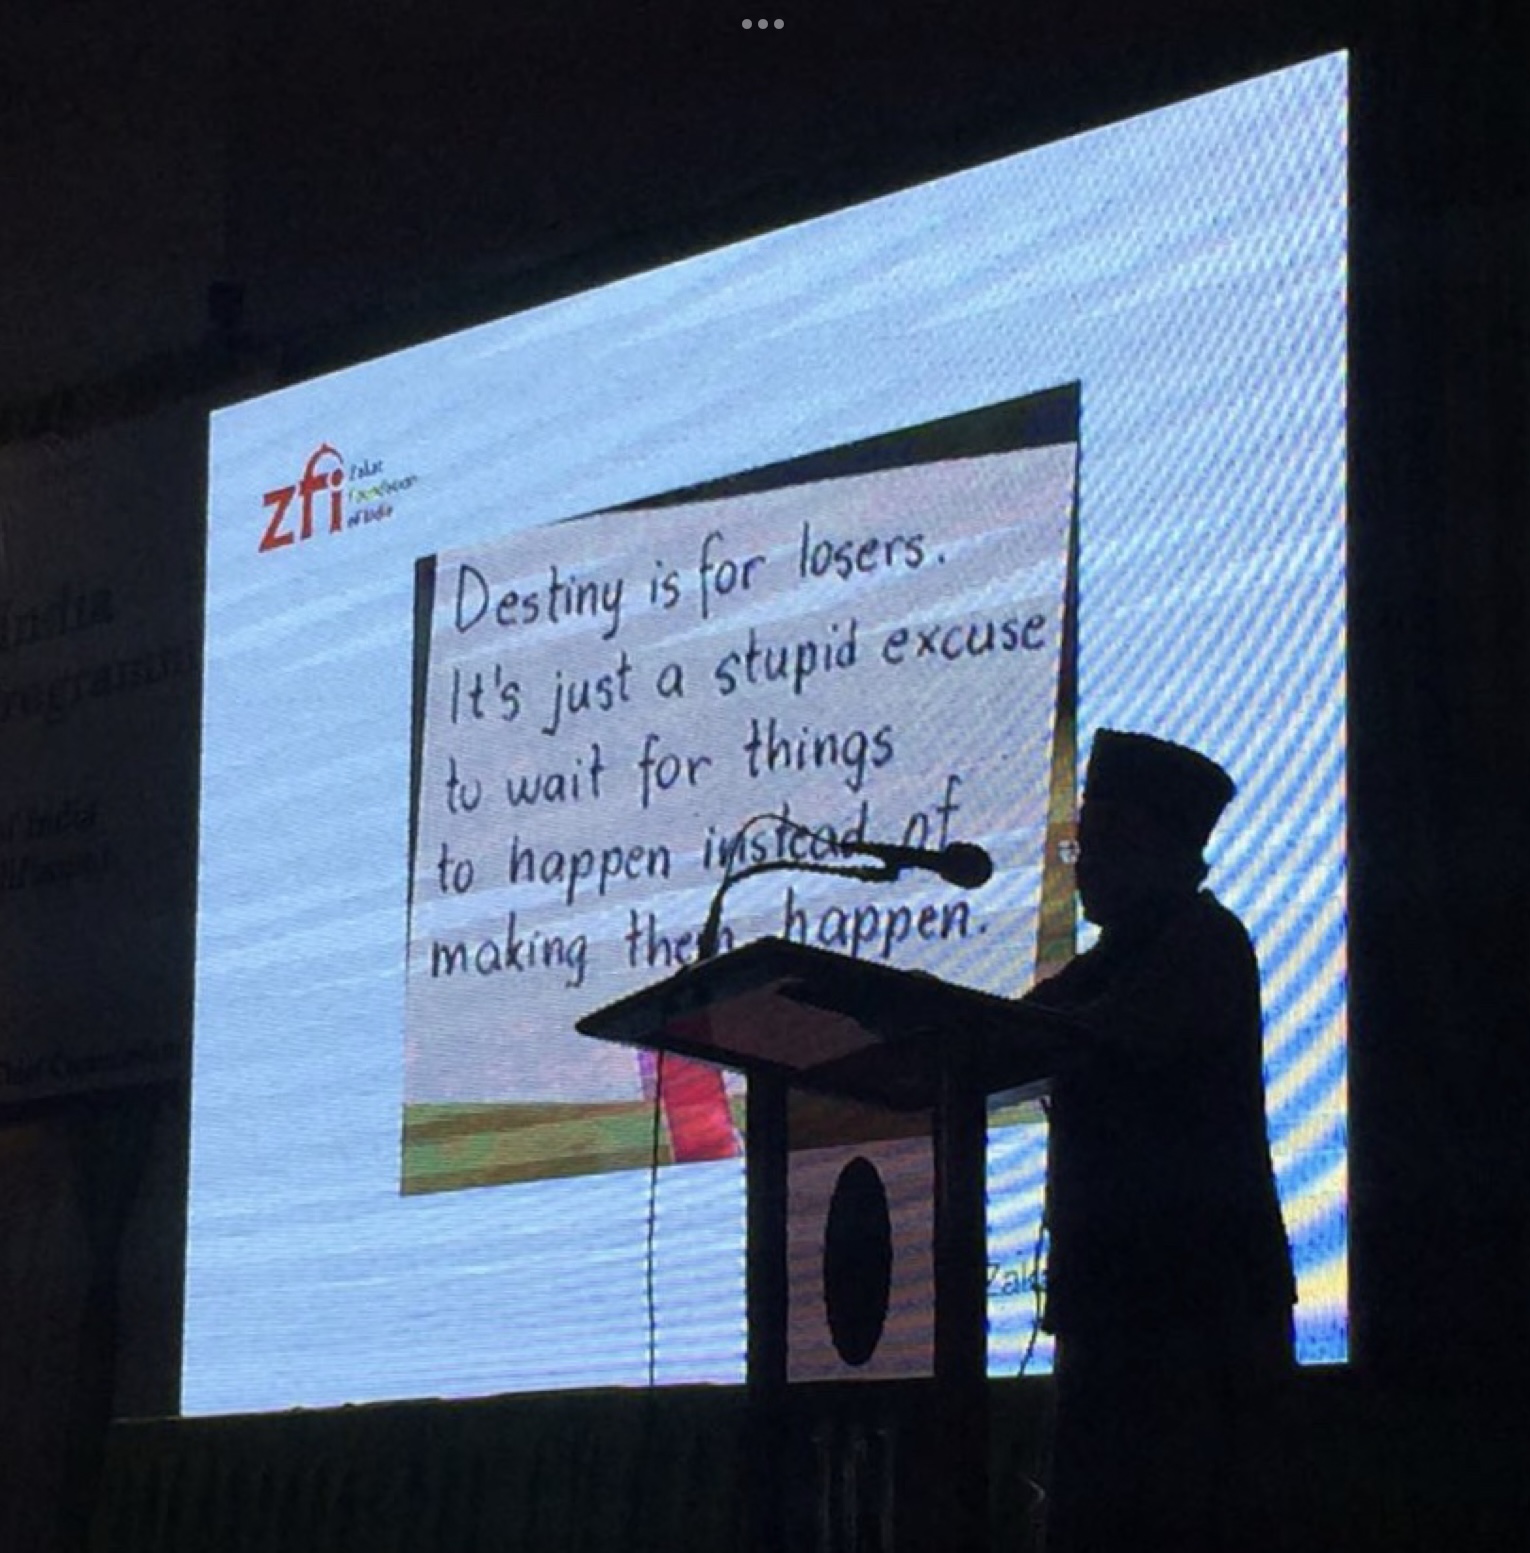 zfi
Zakat
Foundation
of India
Destiny is for losers.
It's just a stupid excuse
to wait for things
to happen instead of
making them happen.
India
of India